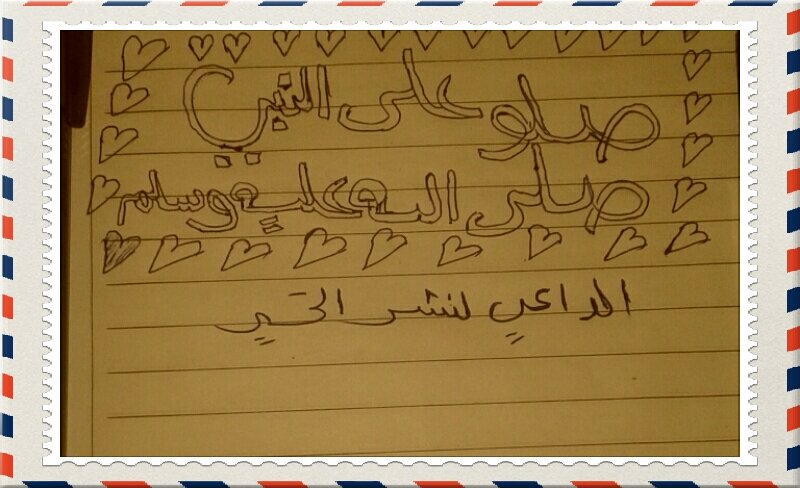 صلو على النبي
صلى الله عليه وسلم
الداعي لنشر الخير